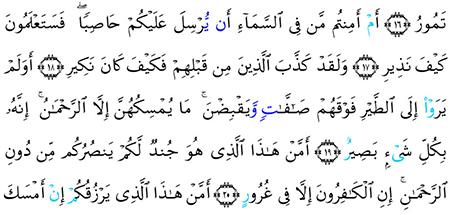 تَمُورُ ﴿١٦﴾ أَمْ أَمِنتُم مَّن فِى ٱلسَّمَآءِ أَن يُرْسِلَ عَلَيْكُمْ حَاصِبًا ۖ فَسَتَعْلَمُونَ
كَيْفَ نَذِيرِ ﴿١٧﴾ وَلَقَدْ كَذَّبَ ٱلَّذِينَ مِن قَبْلِهِمْ فَكَيْفَ كَانَ نَكِيرِ ﴿١٨﴾ أَوَلَمْ
يَرَوْا۟ إِلَى ٱلطَّيْرِ فَوْقَهُمْ صَـٰٓفَّـٰتٍ وَيَقْبِضْنَ ۚ مَا يُمْسِكُهُنَّ إِلَّا ٱلرَّحْمَـٰنُ ۚ إِنَّهُۥ
بِكُلِّ شَىْءٍۭ بَصِيرٌ ﴿١٩﴾ أَمَّنْ هَـٰذَا ٱلَّذِى هُوَ جُندٌ لَّكُمْ يَنصُرُكُم مِّن دُونِ
ٱلرَّحْمَـٰنِ ۚ إِنِ ٱلْكَـٰفِرُونَ إِلَّا فِى غُرُورٍ ﴿٢٠﴾ أَمَّنْ هَـٰذَا ٱلَّذِى يَرْزُقُكُمْ إِنْ أَمْسَكَ